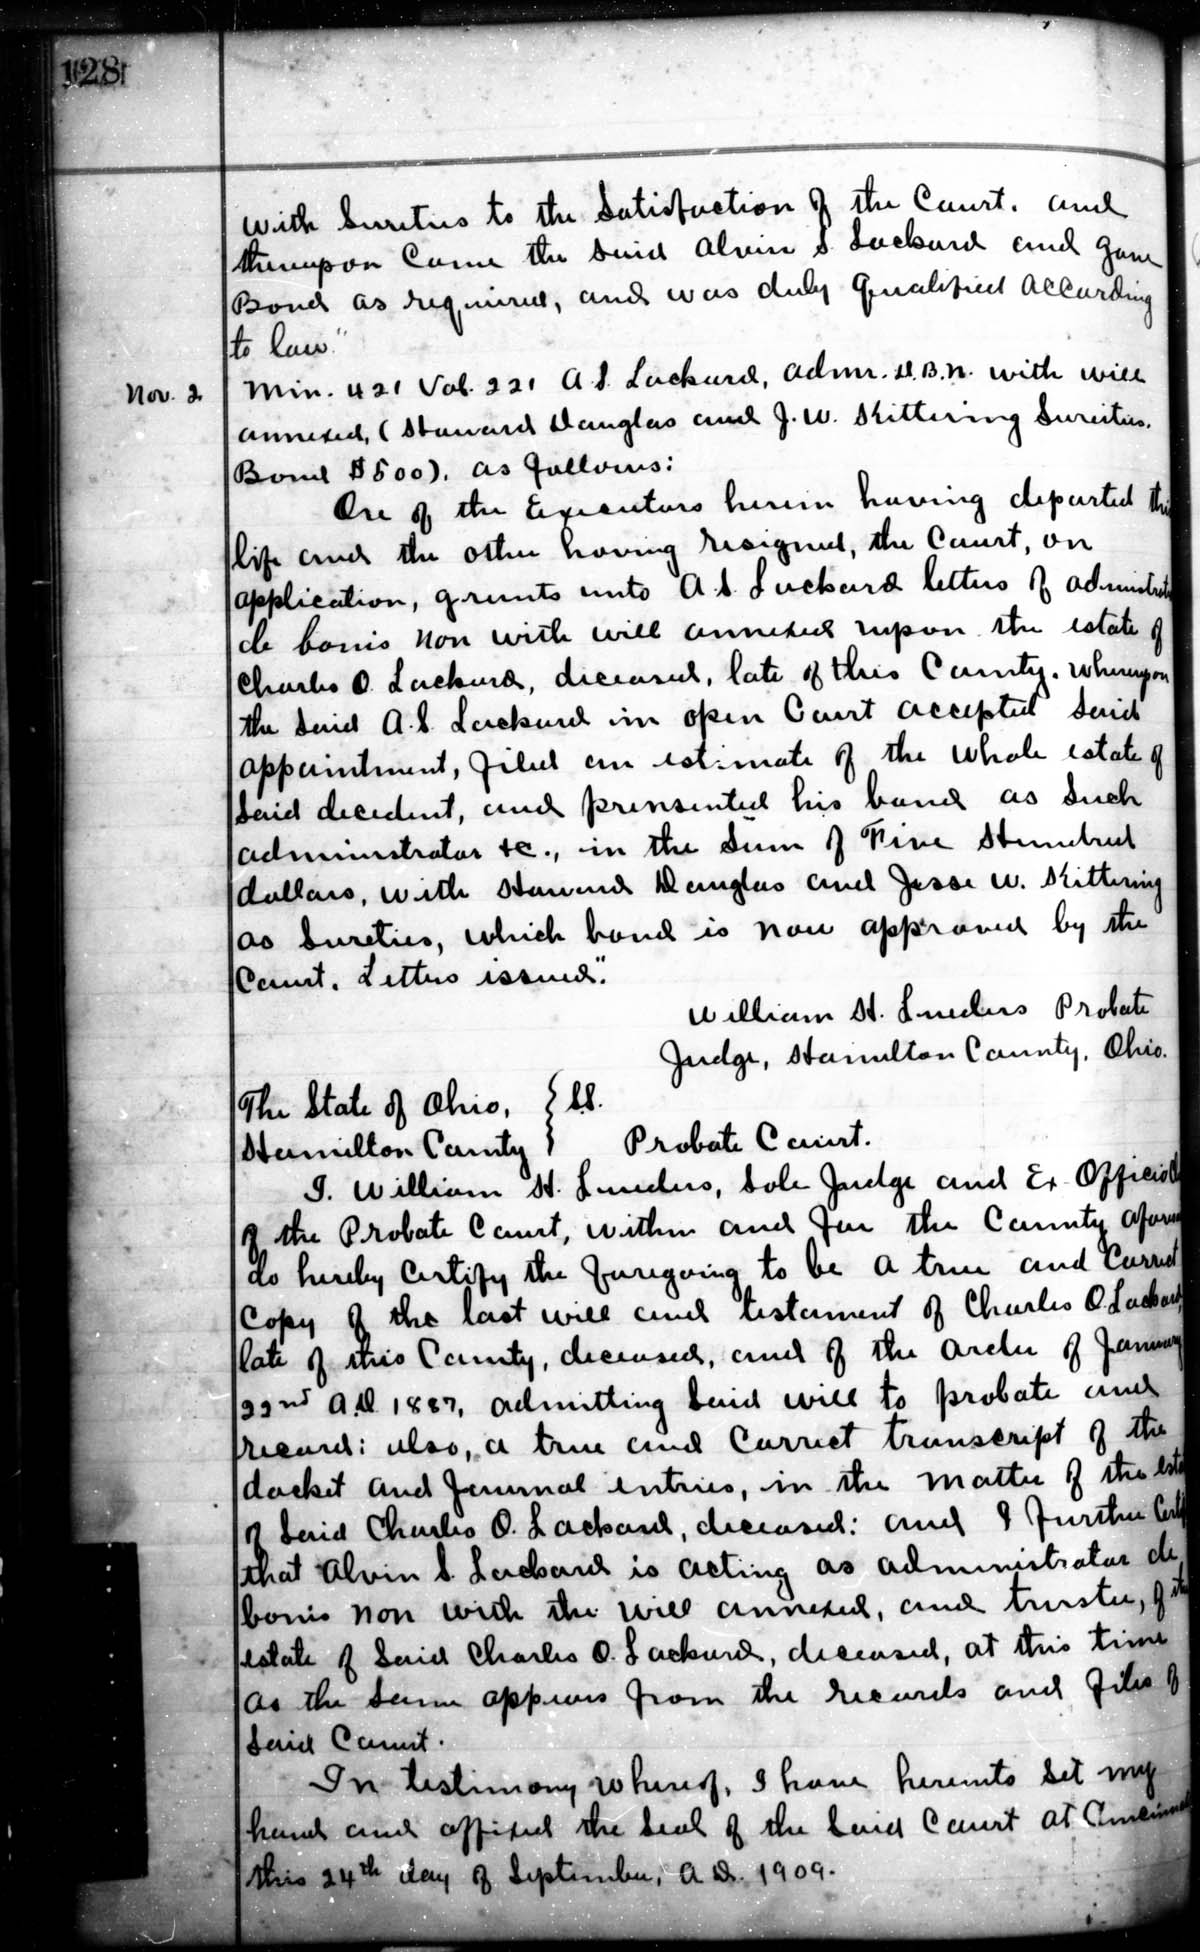 128
with Sureties to the Satisfaction of the Court. and
thereupon Came the said Alvin S. Lackard and gave
Bond as required, and was duly qualified According
to law."
Nov. 2. Min. 421 Vol. 221 A.S. Lackard, admr. D.B.N. with will
annexed, (Howard Douglas and J. W. Kittering Sureities.
Bond $500). as follows:
One of the Executors herein having departed this
life and the other having resigned, the Court, on
application, grants unto A.S. Lackard letters of administrat
de bonis non with will annexed upon the estate of
Charles O. Lackard, deceased, late of this County. whereupon
the said A.S. Lackard in open Court accepted said
appointment, filed an estimate of the whole estate of
said decedent, and prensented his bond as such
administrator &c., in the sum of Five Hundred
dollars, with Howard Douglas and Jesse W. Kittering
as Sureties, which bond is now approved by the
Court. Letters issued."
William H. Lueders Probate
Judge, Hamilton County, Ohio.
The State of Ohio, } S.S.
Hamilton County } Probate Court.
I. William H. Lueders, Sole Judge and Ex-Officio
of the Probate Court, within and for the County afores
do hereby Certify the foregoing to be a true and Correct
Copy of the last will and testament of Charles O. Lackard,
late of this County, deceased, and of the order of January
22nd A.D. 1887, admitting said will to probate and
record: also, a true and Correct transcript of the
docket and Journal entries, in the matter of the esta
of said Charles O. Lackard, deceased: and I further Certif
that Alvin S. Lackard is acting as administrator de
bonis non with the will annexed, and trustee, of the
estate of said Charles O. Lackard, deceased, at this time
as the same appears from the records and files of
said Court.
In testimony whereof, I have hereunto set my
hand and affixed the seal of the said Court at Cincinnati
this 24th day of September, A.D. 1909.